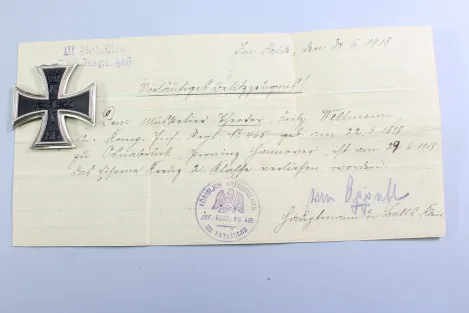 III Bataillon
Inf.-Regt. 465
Im Felde, den 30. 6 1918
Vorläufiges Besitzzeugnis!
Dem Musketier Theodor, Fritz Weltmann
Königl. Inf. Regt. No 465 geb. am 22. 6 1898
zu Osnabrück, Provinz Hannover, ist am 29 6 1918
das Eiserne Kreuz 2. Klasse verliehen worden.
KÖNIGLICH PREUSSISCHES
INF.-REGT. NO 465
III BATAILLON
Hauptmann u. Batls.